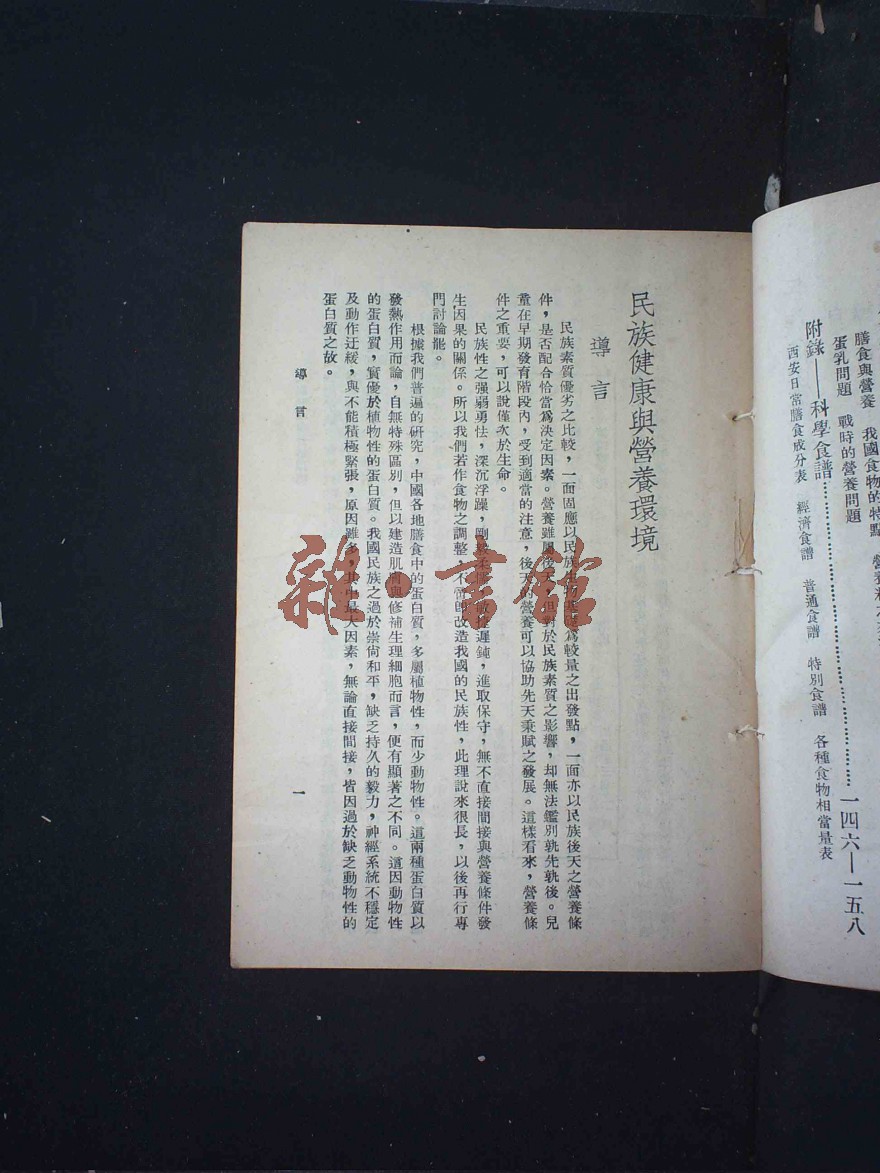 膳食與營養　我國食物的特點
蛋乳問題　戰時的營養問題
附錄——科學食譜…………………………一四六—一五八
西安日常膳食成分表　經濟食譜　普通食譜　特別食譜　各種食物相當量表
民族健康與營養環境
導言
民族素質優劣之比較，一面固應以民族生物基礎爲較量之出發點，一面亦以民族後天之營養條
件，是否配合恰當爲決定因素。營養雖屬後天，但對於民族素質之影響，却無法鑑別孰先孰後。兒
童在早期發育階段內，受到適當的注意，後天的營養可以協助先天秉賦之發展。這樣看來，營養條
件之重要，可以說僅次於生命。
民族性之强弱勇怯，深沉浮躁，剛毅柔懦，敏捷遲鈍，進取保守，無不直接間接與營養條件發
生因果的關係。所以我們若作食物之調整，不啻卽改造我國的民族性，此理說來很長，以後再行專
門討論罷。
根據我們普遍的研究，中國各地膳食中的蛋白質，多屬植物性，而少動物性。這兩種蛋白質以
發熱作用而論，自無特殊區別，但以建造肌膚與修補生理細胞而言，便有顯著之不同。這因動物性
的蛋白質，實優於植物性的蛋白質。我國民族之過於崇尙和平，缺乏持久的毅力，神經系統不穩定
及動作迂緩，與不能積極緊張，原因雖多，其中最大因素，無論直接間接，皆因過於缺乏動物性的
蛋白質之故。
導言
一
雜·書館